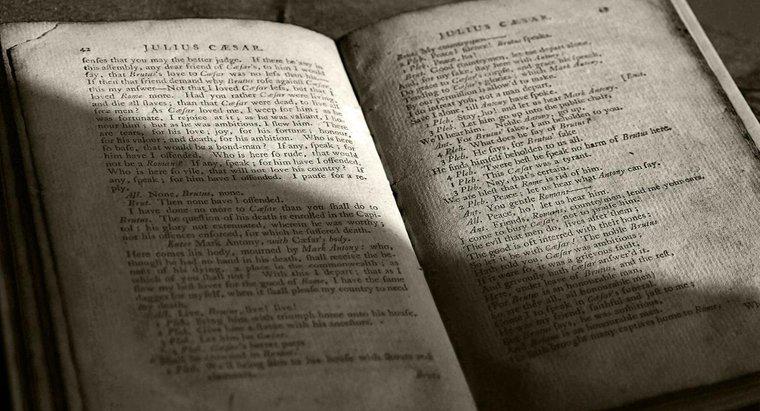 42 JULIUS CÆSAR.
ſenſes that you may the better judge. If there be any in
this aſſembly, any dear friend of Cæſar's, to him I would
ſay, that Brutus's love to Cæſar was no leſs than his.
If then that friend demand why Brutus roſe againſt Cæſar,
this my anſwer—Not that I lov'd Cæſar leſs, but that I
loved Rome more. Had you rather Cæſar were living,
and die all ſlaves; than that Cæſar were dead, to live all
free men? As Cæſar loved me, I weep for him; as he
was fortunate, I rejoice at it; as he was valiant, I ho-
nour him; but as he was ambitious, I ſlew him. There
are tears, for his love; joy, for his fortune; honour,
for his valour; and death, for his ambition. Who is here
ſo baſe, that would be a bond-man? If any, ſpeak; for
him have I offended. Who is here ſo rude, that would
not be a Roman? If any, ſpeak; for him have I offended.
Who is here ſo vile, that will not love his country? If
any, ſpeak; for him have I offended. I pauſe for a re-
ply.
All. None, Brutus, none.
Brut. Then none have I offended.
I have done no more to Cæſar than you ſhall do to
Brutus. The queſtion of his death is enrolled in the Capi-
tol; his glory not extenuated, wherein he was worthy;
nor his offences enforced, for which he ſuffered death.
Enter Mark Antony, with Cæſar's body.
Here comes his body, mourned by Mark Antony: who,
though he had no hand in his death, ſhall receive the be-
nefit of his dying, a place in the commonwealth; as
which of you ſhall not? With this I depart; that as I
ſlew my beſt lover for the good of Rome, I have the ſame
dagger for myſelf, when it ſhall pleaſe my country to need
my death.
All. Live, Brutus, live! live!
1 Pleb. Bring him with triumph home unto his houſe.
2 Pleb. Give him a ſtatue with his anceſtors.
3 Pleb. Let him be Cæſar.
4 Pleb. Cæſar's better parts
Shall be crowned in Brutus.
1 Pleb. We'll bring him to his houſe with ſhouts and
clamours.
Brut.
JULIUS CÆSAR.
Brut. My countrymen—
2 Pleb. Peace! ſilence! Brutus ſpeaks.
1 Pleb. Peace, ho!
Brut. Good countrymen, let me depart alone;
And, for my ſake, ſtay here with Antony;
Do grace to Cæſar's corpſe, and grace his ſpeech,
Tending to Cæſar's glories; which Mark Antony
By our permiſſion is allow'd to make.
I do intreat you, not a man depart,
Save I alone, till Antony have ſpoke. [Exit.
1 Pleb. Stay, ho! and let us hear Mark Antony.
3 Pleb. Let him go up into the public chair,
We'll hear him: noble Antony, go up.
Ant. For Brutus' ſake, I am beholden to you.
4 Pleb. What does he ſay of Brutus?
3 Pleb. He ſays, for Brutus' ſake
He finds himſelf beholden to us all.
4 Pleb. 'Twere beſt he ſpeak no harm of Brutus here.
1 Pleb. This Cæſar was a tyrant.
3 Pleb. Nay, that's certain.
We are bleſt that Rome is rid of him.
2 Pleb. Peace, let us hear what Antony can ſay.
Ant. You gentle Romans—
All. Peace, ho! let us hear him.
Ant. Friends, Romans, countrymen, lend me your ears.
I come to bury Cæſar, not to praiſe him.
The evil that men do, lives after them;
The good is oft interred with their bones;
So let it be with Cæſar! The noble Brutus
Hath told you, Cæſar was ambitious;
If it were ſo, it was a grievous fault,
And grievouſly hath Cæſar anſwer'd it.
Here, under leave of Brutus, and the reſt,
(For Brutus is an honourable man,
So are they all, all honourable men)
Come I to ſpeak in Cæſar's funeral.
He was my friend, faithful and juſt to me;
But Brutus ſays, he was ambitious;
And Brutus is an honourable man.
He hath brought many captives home to Rome,